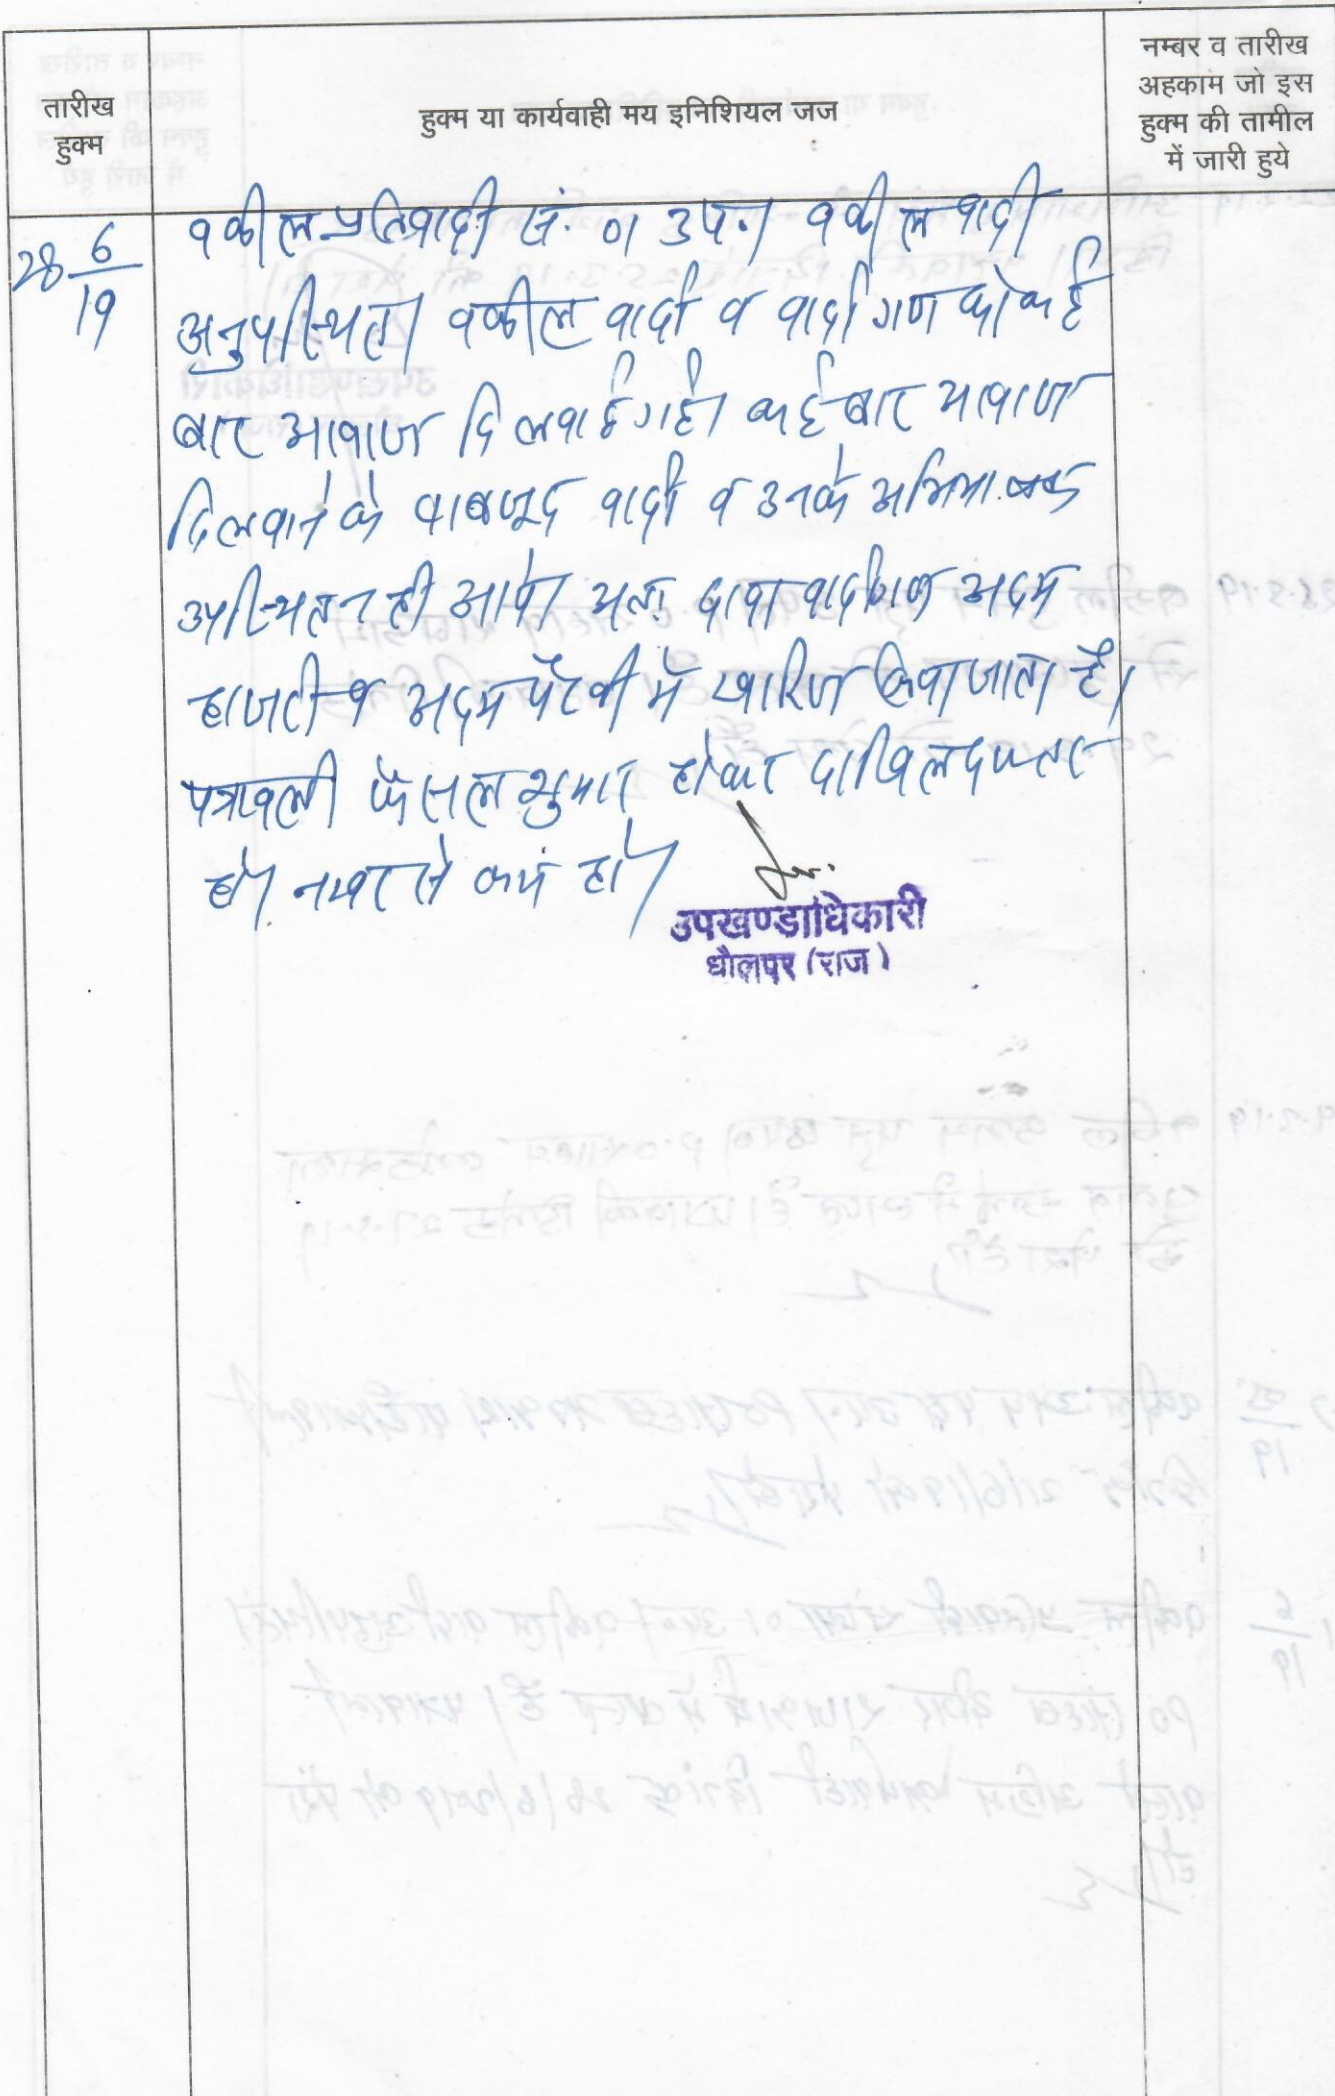 तारीख
हुक्म
हुक्म या कार्यवाही मय इनिशियल जज
नम्बर व तारीख
अहकाम जो इस
हुक्म की तामील
में जारी हुये
28 6/19
वकील प्रतिवादी सं. 01 उप0। वकील वादी
अनुपस्थित। वकील वादी व वादीगण को कई
बार आवाज दिलवाई गई। कई बार आवाज
दिलवाने के बाबजूद वादी व उनके अभिभाषक
उपस्थित नही आये। अतः दावा वादीगण अदम
हाजरी व अदम पैरवी में खारिज किया जाता है।
पत्रावली फैसल शुमार होकर दाखिल दफ्तर
हो। नम्बर से कम हो।
उपखण्डाधिकारी
धौलपुर (राज)